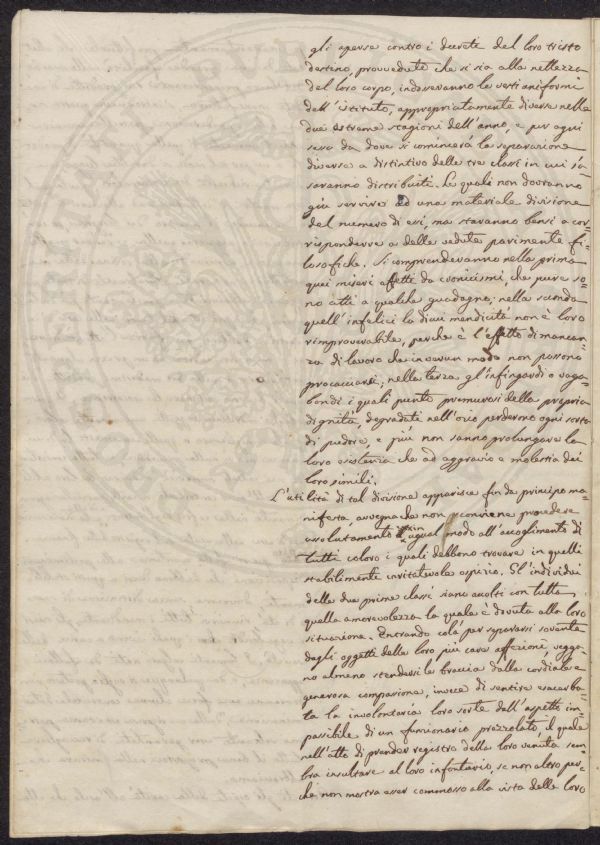 gli aperse contro i decreti del loro tristo
destino, provvedute che si sia alla nettezza
del loro corpo, indosseranno le vesti uniformi
dell'istituto, appropriatamente diverse nelle
due estreme stagioni dell'anno, e per ogni
sesso da dove si comincierà la separazione
diverse a distintivo delle tre classi in cui s'a-
saranno distribuiti. Le quali non dovranno
già servire ad una materiale divisione
del numero di essi, ma staranno bensì a cor-
rispondere a delle vedute parimente fi-
losofiche. Si comprenderanno nella prima
quei miseri affetti da cronicismi, che pure so-
no atti a qualche guadagno; nella seconda
quell'infelici la di cui mendicità non è loro
rimproverabile, perchè è l'effetto di mancan-
za di lavoro che in verun modo non possono
procacciarsi; nella terza gl'infingardi o vaga-
bondi i quali punto premurosi della propria
dignità, degradati nell'ozio perderono ogni sorta
di pudore, e più non sanno prolungare la
loro esistenza che ad aggravio e molestia dei
loro simili.
L'utilità di tal divisione apparisce fin da principio ma-
nifesta, avvegna che non conviene procedere
assolutamento in ugual modo all'accoglimento di
tutti coloro i quali debbono trovare in quelli
stabilimenti invitatevole ospizio. Gl'individui
delle due prime classi siano accolti con tutta
quella amorevolezza la quale è dovuta alla loro
situazione. Entrando colà per separarsi sovente
dagli oggetti delle loro più care affezioni, vegga-
no almeno stendersi le braccia dalla cordiale e
generosa compassione, invece di sentire esacerba-
ta la involontaria loro sorte dall'aspetto im-
passibile di un funzionario prezzolato, il quale
nell'atto di prender registro della loro venuta sem-
bra insultare al loro infortunio, se non altro per-
chè non mostra esser commosso alla vista delle loro